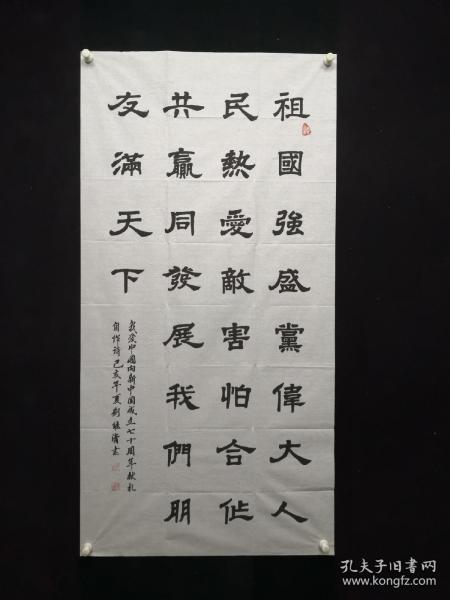 祖國強盛黨偉大人
民熱愛敵害怕合作
共贏同發展我們朋
友滿天下
我愛中國向新中國成立七十周年献礼
自作詩己亥年夏刘
書
孔夫子旧书网
www.kongfz.com